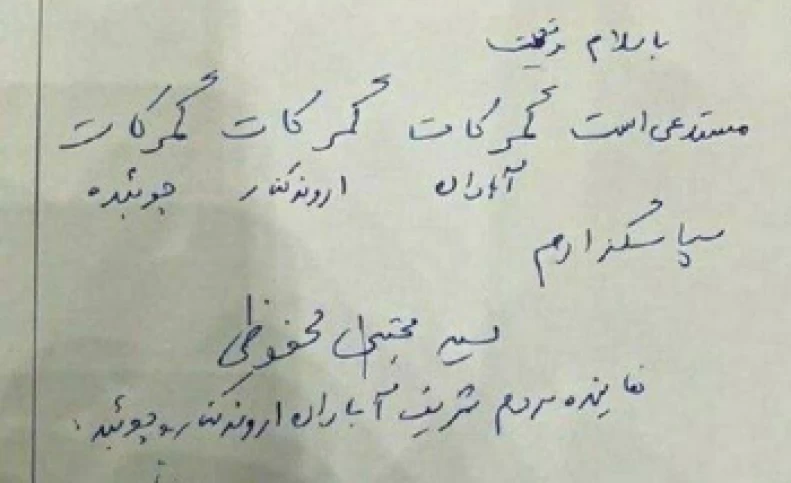 باسلام و تحیت
مستدعی است گمرکات گمرکات گمرکات
آبادان اروندکنار چوئبده
سپاسگزارم
سید مجتبی محفوظی
نماینده مردم شریف آبادان اروندکنار و چوئبده